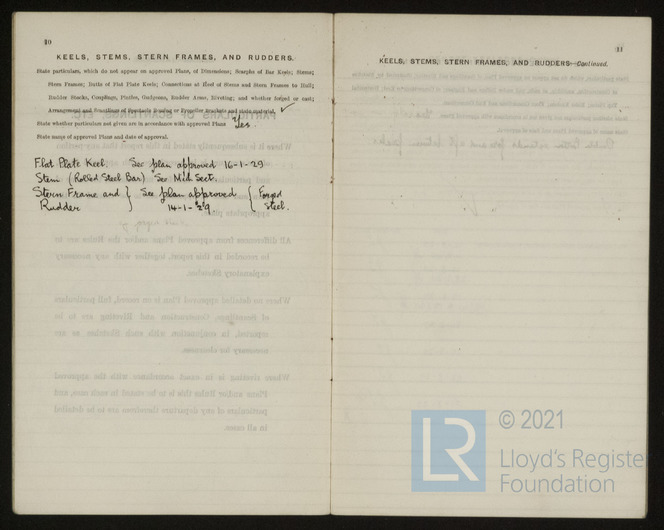 10
KEELS, STEMS, STERN FRAMES, AND RUDDERS.
State particulars, which do not appear on approved Plans, of Dimensions; Scarphs of Bar Keels; Stems;
Stern Frames; Butts of Flat Plate Keels; Connections at Heel of Stems and Stern Frames to Hull;
Rudder Stocks, Couplings, Pintles, Gudgeons, Rudder Arms, Riveting; and whether forged or cast;
Arrangement and Scantlings of Spectacle Bossing or Propeller Brackets and state material. ✓
State whether particulars not given are in accordance with approved Plans. Yes.
State name of approved Plans and date of approval.
Flat Plate Keel. See plan approved 16-1-29
Stem (Rolled Steel Bar) See Mid. Sect.
Stern Frame and } See plan approved { Forged
Rudder 14-1-29 Steel.
11
KEELS, STEMS, STERN FRAMES, AND RUDDERS—Continued.
LR
© 2021
Lloyd's Register
Foundation